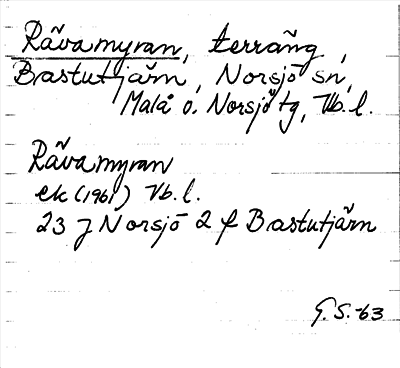 Rävamyran, terräng,
Bastutjärn, Norsjö sn,
Malå o. Norsjö tg, Vb. l.
Rävamyran
ek (1961) Vb. l.
23 J Norsjö 2 f Bastutjärn
G. S. -63